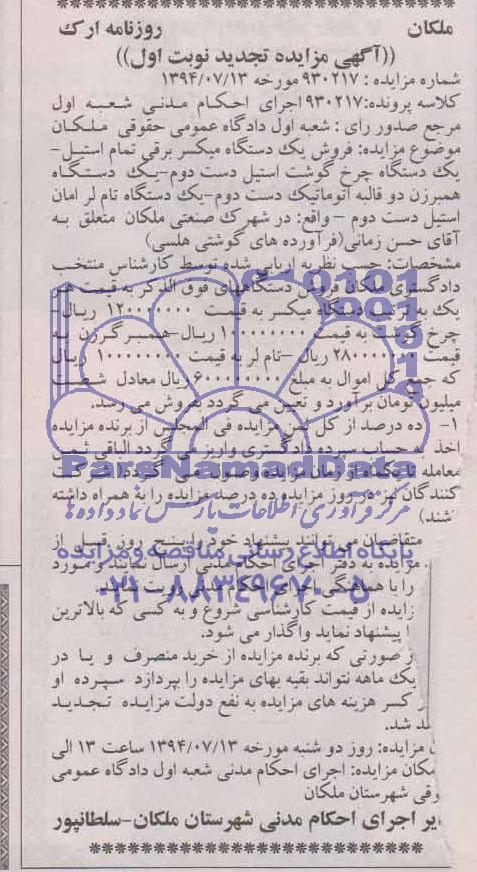 ملکان
روزنامه ارک
((آگهی مزایده تجدید نوبت اول))
شماره مزایده : ۹۳۰۲۱۷ مورخه ۱۳۹۴/۰۷/۱۳
کلاسه پرونده:۹۳۰۲۱۷ اجرای احکام مدنی شعبه اول
مرجع صدور رای : شعبه اول دادگاه عمومی حقوقی ملکان
موضوع مزایده: فروش یک دستگاه میکسر برقی تمام استیل-
یک دستگاه چرخ گوشت استیل دست دوم-یک دستگاه
همبرزن دو قالبه آتوماتیک دست دوم-یک دستگاه تام لر امان
استیل دست دوم – واقع: در شهرک صنعتی ملکان متعلق به
آقای حسن زمانی(فرآورده های گوشتی هلسی)
مشخصات: حسب نظریه اریابی شده توسط کارشناس منتخب
دادگستری ملکان فروش دستگاههای فوق الذکر به قیمت هر
یک به ترتیب دستگاه میکسر به قیمت ۱۲۰۰۰۰۰۰۰ ریال-
چرخ گوشت به قیمت ۱۰۰۰۰۰۰۰۰ ریال-همبرگرزن به
قیمت ۲۸۰۰۰۰۰۰۰ ریال –تام لر به قیمت ۱۰۰۰۰۰۰۰۰ ریال
که جمع کل اموال به مبلغ ۶۰۰۰۰۰۰۰۰ ریال معادل شصت
میلیون تومان برآورد و تعیین می گردد بفروش می رسد.
۱- ده درصد از کل ثمن مزایده فی المجلس از برنده مزایده
اخذ به حساب سپرده دادگستری واریز می گردد الباقی ثمن
معامله تا یکماه از زمان مزایده وصول می گردد.(شرکت
کنندگان نیز در روز مزایده ده درصد مزایده را به همراه داشته
باشند)
متقاضیان می توانند پیشنهاد خود را پنج روز قبل از
مزایده به دفتر اجرای احکام مدنی ارسال نمائند و مورد
را با هماهنگی اجرای احکام مدنی رویت نمایند.
زایده از قیمت کارشناسی شروع و به کسی که بالاترین
پیشنهاد نماید واگذار می شود.
ر صورتی که برنده مزایده از خرید منصرف و یا در
یک ماهه نتواند بقیه بهای مزایده را بپردازد سپرده او
کسر هزینه های مزایده به نفع دولت مزایده تجدید
د شد.
ن مزایده: روز دو شنبه مورخه ۱۳۹۴/۰۷/۱۳ ساعت ۱۳ الی
مکان مزایده: اجرای احکام مدنی شعبه اول دادگاه عمومی
وقی شهرستان ملکان
یر اجرای احکام مدنی شهرستان ملکان-سلطانپور
ParsNamadData
مرکز فرآوری اطلاعات پارس نماد داده ها
پایگاه اطلاع رسانی مناقصه و مزایده
۰۲۱-۸۸۳۴۹۶۷۰-۵